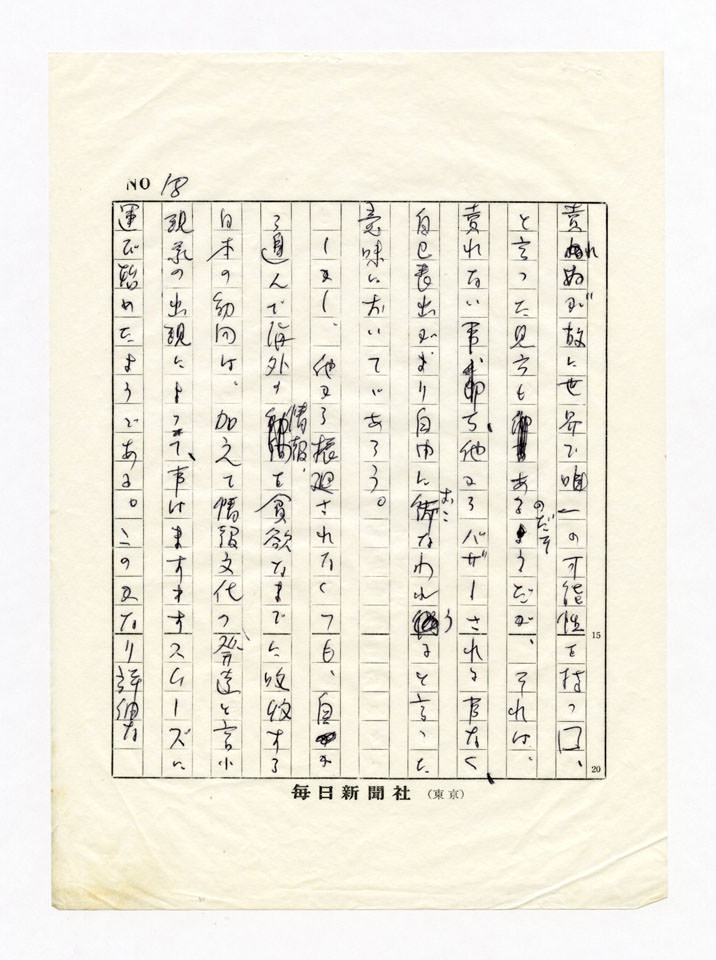 NO 18
売れぬが故に世界で唯一の可能性を持つ口、
と言った見方もあるのだそうだが、それは、
売れない事、即ち他からバザーされる事なく、
自己表出がより自由に行(おこ)なわれうると言った
意味においてであろう。
しかし、他から振廻されなくつも、自か
ら進んで海外の情報を貪欲なまでに吸収する
日本の動向は、加えて情報文化の発達と言小
現象の出現によって、事はますますスムーズに
運び始めたようである。このかなり詳細な
15
20
毎日新聞社 (東京)